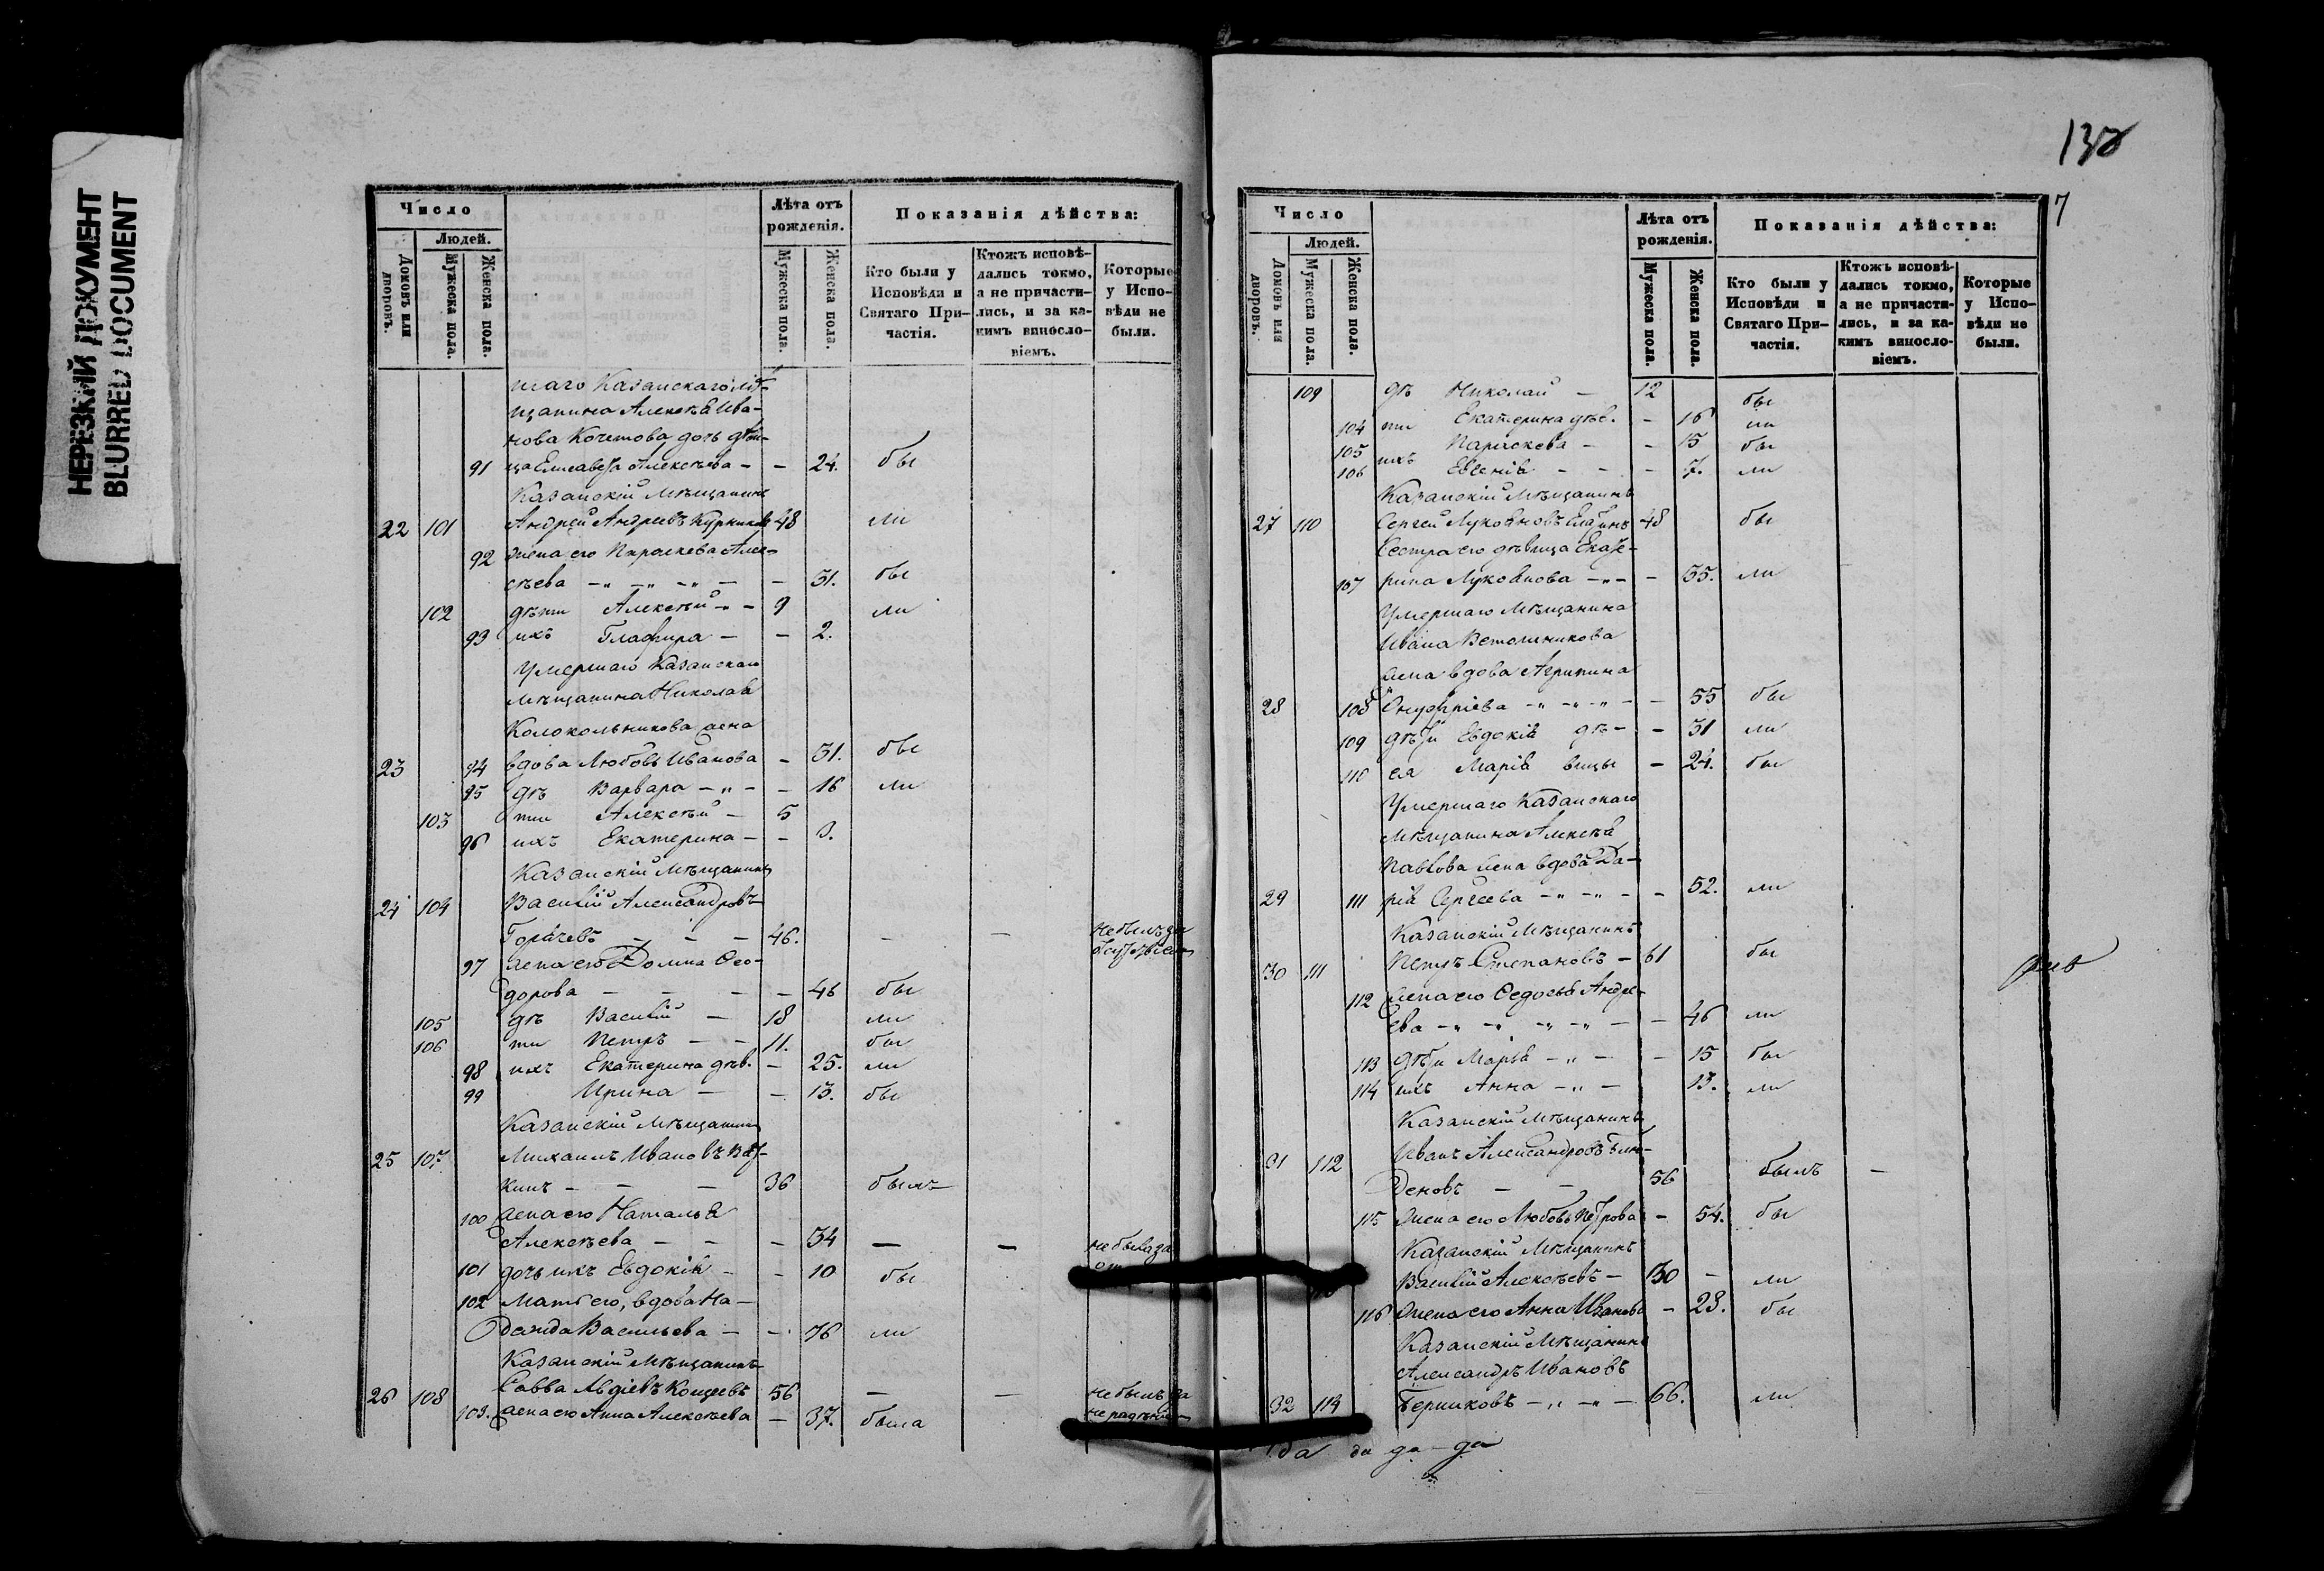 НЕРЕЗКИЙ ДОКУМЕНТ
BLURRED DOCUMENT
Число
Людей.
Домовъ или дворовъ.
Мужеска пола.
Женска пола.
Лѣта отъ рожденія.
Мужеска пола.
Женска пола.
Показанія дѣйства:
Кто были у Исповѣди и Святаго Причастія.
Ктожъ исповѣдались токмо, а не причастились, и за какимъ винословіемъ.
Которые у Исповѣди не были.
шаго Казанскаго мѣ-
щанина Алексѣя Ива-
нова Кочетова дочь дѣви-
91 ца Елисавета Алексѣева - - 24. бы
Казанскій Мѣщанинъ
22 101 Андрей Андреевъ 48 ли
92 жена его Параскева Алек-
сѣева - - 31. бы
102 дѣти Алексѣй - 9 ли
93 ихъ Глафира - - 2.
Умершаго Казанскаго
Мѣщанина Николая
Колокольникова жена
23 94 вдова Любовь Иванова - 31. бы
95 дѣ Варвара - - 16 ли
103 ти Алексѣй - 5
96 ихъ Екатерина - - 3.
Казанскій Мѣщанинъ
24 104 Василій Александровъ
Горячевъ - - - 46. - - не былъ за
97 жена его Домна Ѳео-
дорова - - - - 46 бы
105 дѣ Василій - 18 ли
106 ти Петръ - - 11. бы
98 ихъ Екатерина дѣв. - 25. ли
99 Ирина - - 13. бы
Казанскій Мѣщанинъ
25 107 Михаилъ Ивановъ
кинъ - - - 36 былъ
100 жена его Наталья
Алексѣева - - - 34 - - не была за
101 дочь ихъ Евдокія - - 10 бы
102 Мать его, вдова На-
дежда Васильева - - 76 ли
Казанскій Мѣщанинъ
26 108 Савва Авдіевъ Кощеевъ 56 - - не былъ за
103. жена его Анна Алексѣева - 37. была нерадѣнію
138
7
Число
Людей.
Домовъ или дворовъ.
Мужеска пола.
Женска пола.
Лѣта отъ рожденія.
Мужеска пола.
Женска пола.
Показанія дѣйства:
Кто были у Исповѣди и Святаго Причастія.
Ктожъ исповѣдались токмо, а не причастились, и за какимъ винословіемъ.
Которые у Исповѣди не были.
109 дѣ Николай - 12 бы
104 ти Екатерина дѣв. - 16 ли
105 Параскева - - 15 бы
106 ихъ Евгенія - - - 7. ли
Казанскій Мѣщанинъ
27 110 Сергей Лукояновъ 48 бы
Сестра его дѣвица Екате-
107 рина Лукоянова - - 35. ли
Умершаго Мѣщанина
Ивана Ветошникова
жена вдова Агрипина
28 108 Онуфріева - - - - 55 бы
109 дѣти Евдокія дѣ- - 31 ли
110 ея Марія вицы - 24. бы
Умершаго Казанскаго
Мѣщанина Алексѣя
Павлова жена вдова Да-
29 111 рія Сергеева - - - - 52. ли
Казанскій Мѣщанинъ
30 111 Петръ Степановъ - 61 бы
112 жена его Ѳедосья Андре-
ева - - - - - 46 ли
113 дѣти Марья - - - 15 бы
114 ихъ Анна - - 13. ли
Казанскій Мѣщанинъ
31 112 Иванъ Александровъ
деновъ - - 56 былъ -
115 жена его Любовь Петрова - 54. бы
Казанскій Мѣщанинъ
Василій Алексѣевъ - 30 - ли
116 жена его Анна Иванова - 23. бы
Казанскій Мѣщанинъ
Александръ Ивановъ
32 114 Терпиковъ - - - 66. ли
да да да - да